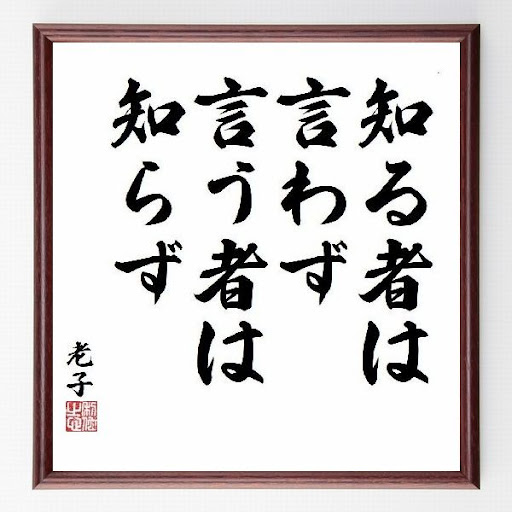 知る者は
言わず
言う者は
知らず
老子